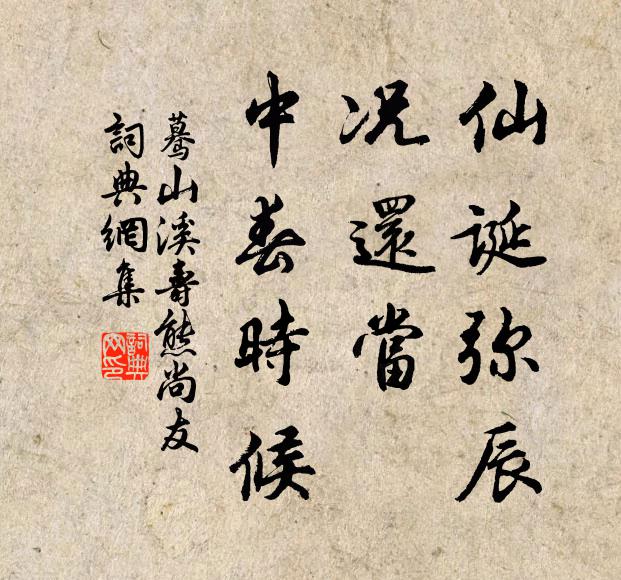 仙誕弥辰
况還當
中春時候
驀山溪壽熊尚友
詞典網集
詞典網印